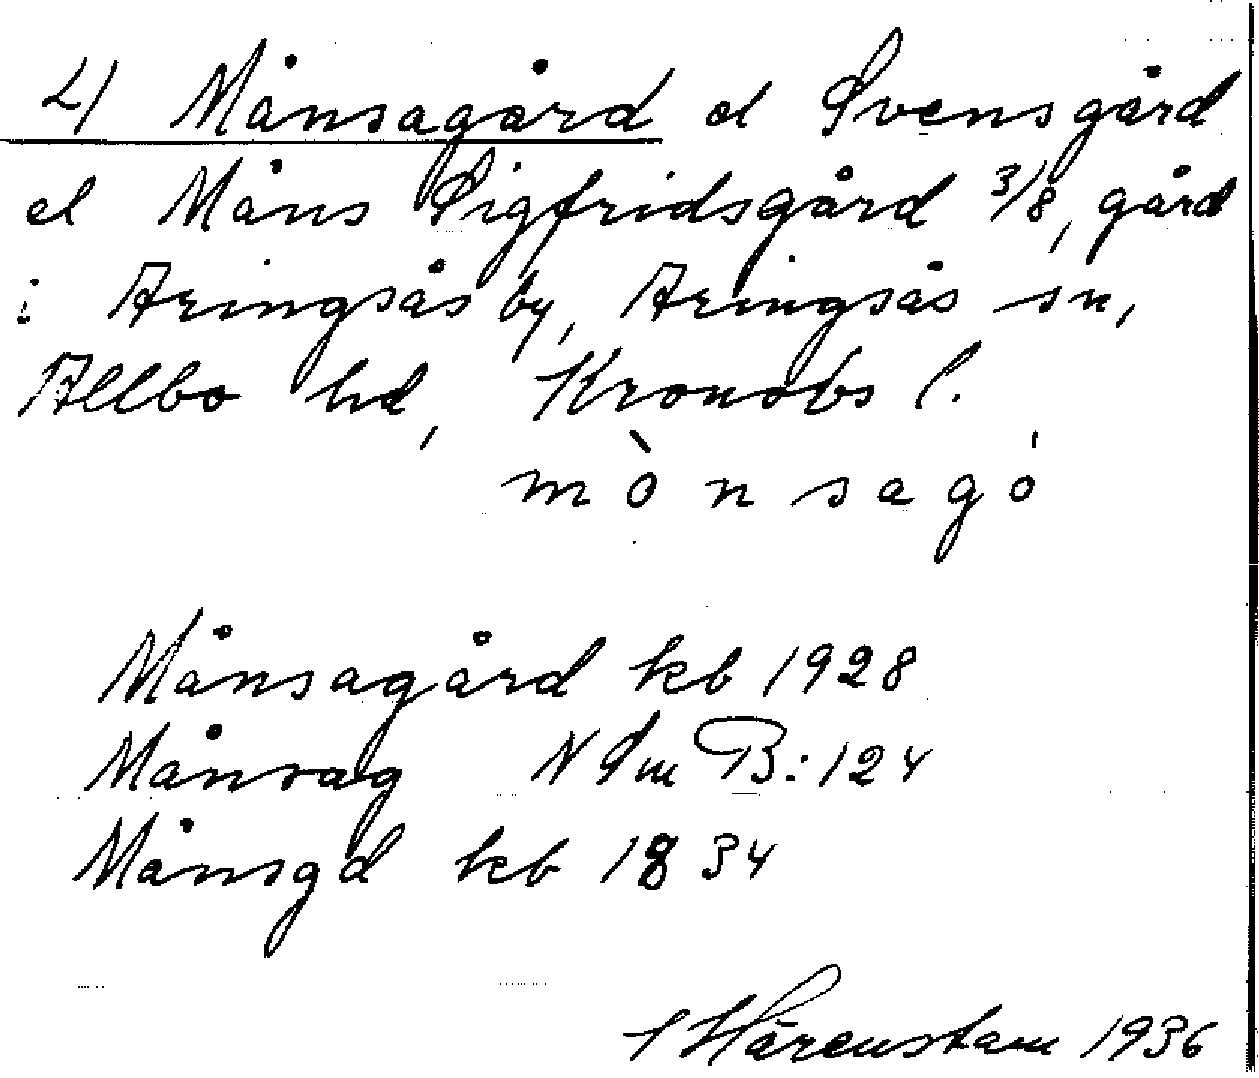 4) Månsagård el Svensgård
el Måns Sigfridsgård 3/8, gård
i Aringsås by, Aringsås sn,
Allbo hd, Kronobs l.
mònsagó
Månsagård kb 1928
Månsag N Sm B: 124
Månsgd kb 1834
Härenstam 1936